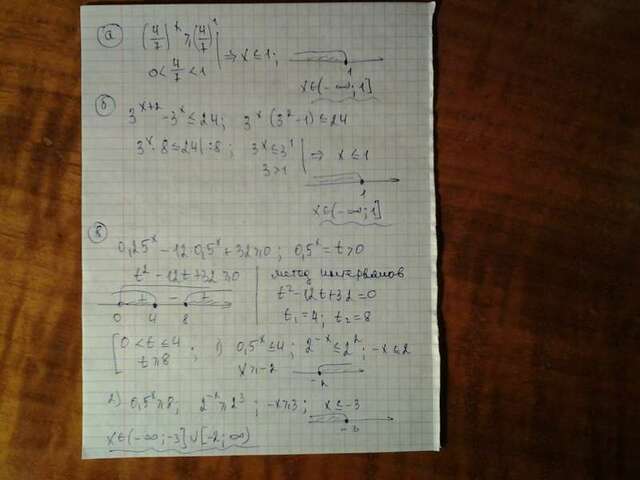 а) (4/7)^x ≥ (4/7)^1 | ⇒ x ≤ 1;
0 < 4/7 < 1
1
x∈(-∞; 1]
б) 3^(x+2) - 3^x ≤ 24; 3^x (3^2 - 1) ≤ 24
3^x · 8 ≤ 24 | :8; 3^x ≤ 3^1 | ⇒ x ≤ 1
3 > 1
1
x∈(-∞; 1]
в) 0,25^x - 12·0,5^x + 32 ≥ 0; 0,5^x = t > 0
t^2 - 12t + 32 ≥ 0 | метод интервалов
+ - + | t^2 - 12t + 32 = 0
0 4 8 | t₁ = 4; t₂ = 8
[ 0 < t ≤ 4 ; 1) 0,5^x ≤ 4; 2^(-x) ≤ 2^2; -x ≤ 2
t ≥ 8 x ≥ -2
-2
2) 0,5^x ≥ 8; 2^(-x) ≥ 2^3; -x ≥ 3; x ≤ -3
-3
x∈(-∞; -3] ∪ [-2; ∞)